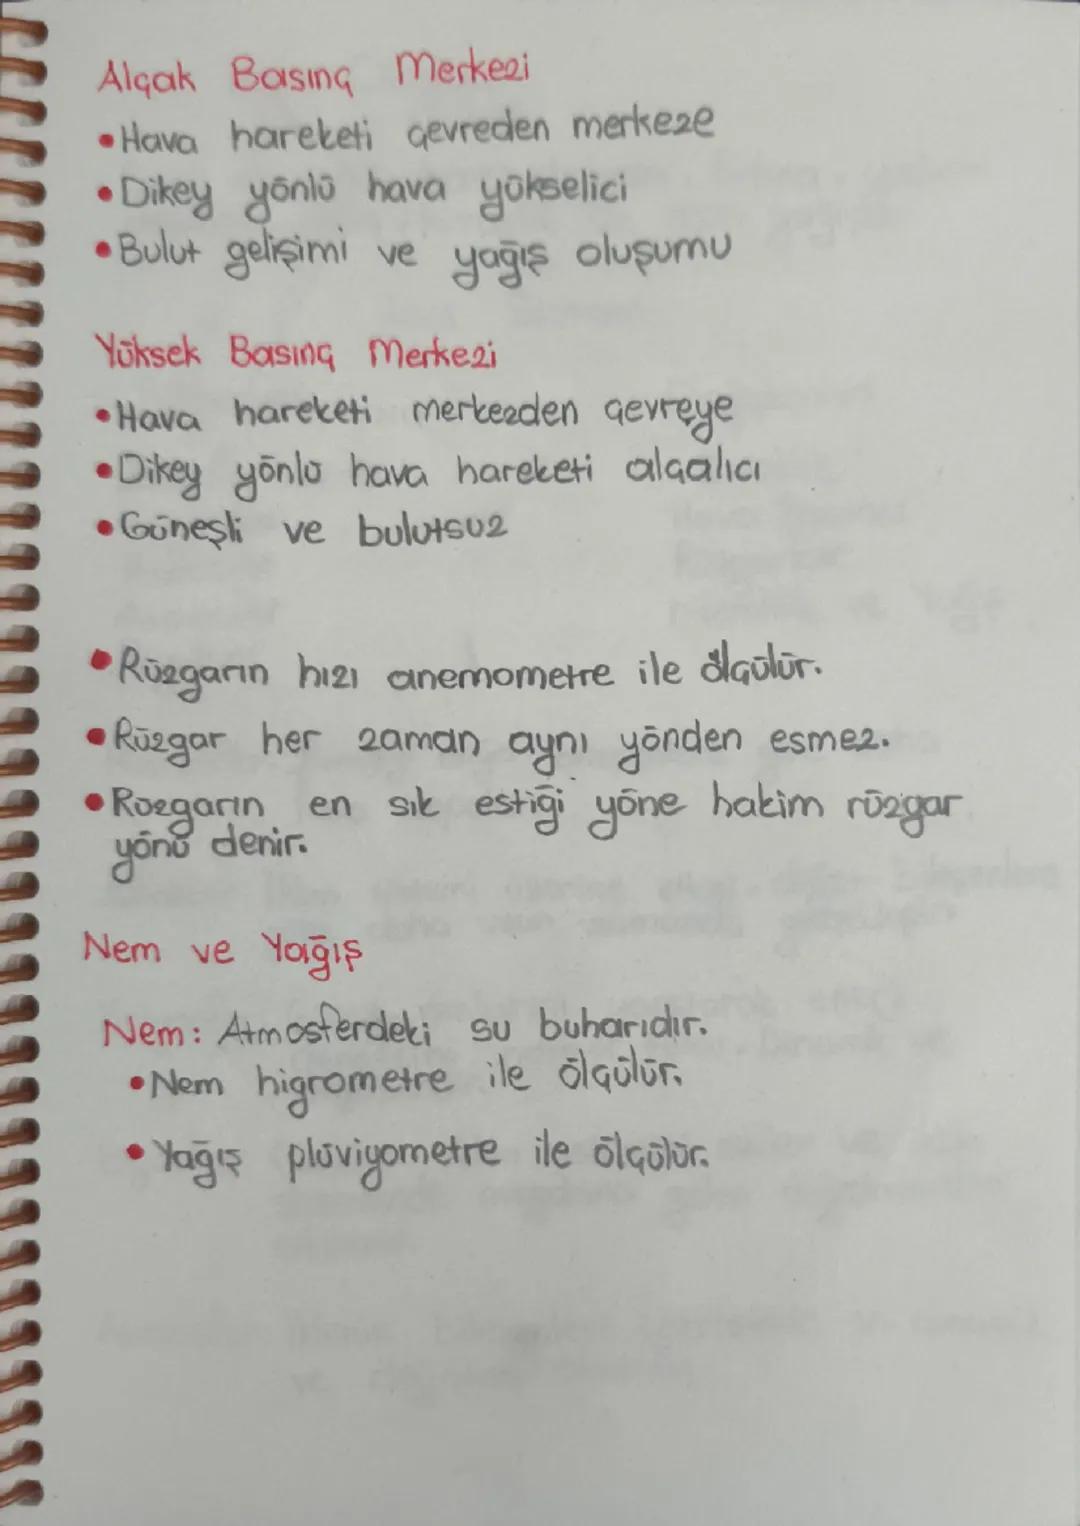 Alçak Basınç Merkezi
• Hava hareketi çevreden merkeze
• Dikey yönlü hava yükselici
• Bulut gelişimi ve yağış oluşumu
Yüksek Basınç Merkezi
• Hava hareketi merkezden çevreye
• Dikey yönlü hava hareketi alçalıcı
• Güneşli ve bulutsuz
• Rüzgarın hızı anemometre ile ölçülür.
• Rüzgar her zaman aynı yönden esmez.
• Rüzgarın en sık estiği yöne hakim rüzgar
yönü denir.
Nem ve Yağış
Nem: Atmosferdeki su buharıdır.
• Nem higrometre ile ölçülür.
• Yağış plüviyometre ile ölçülür.